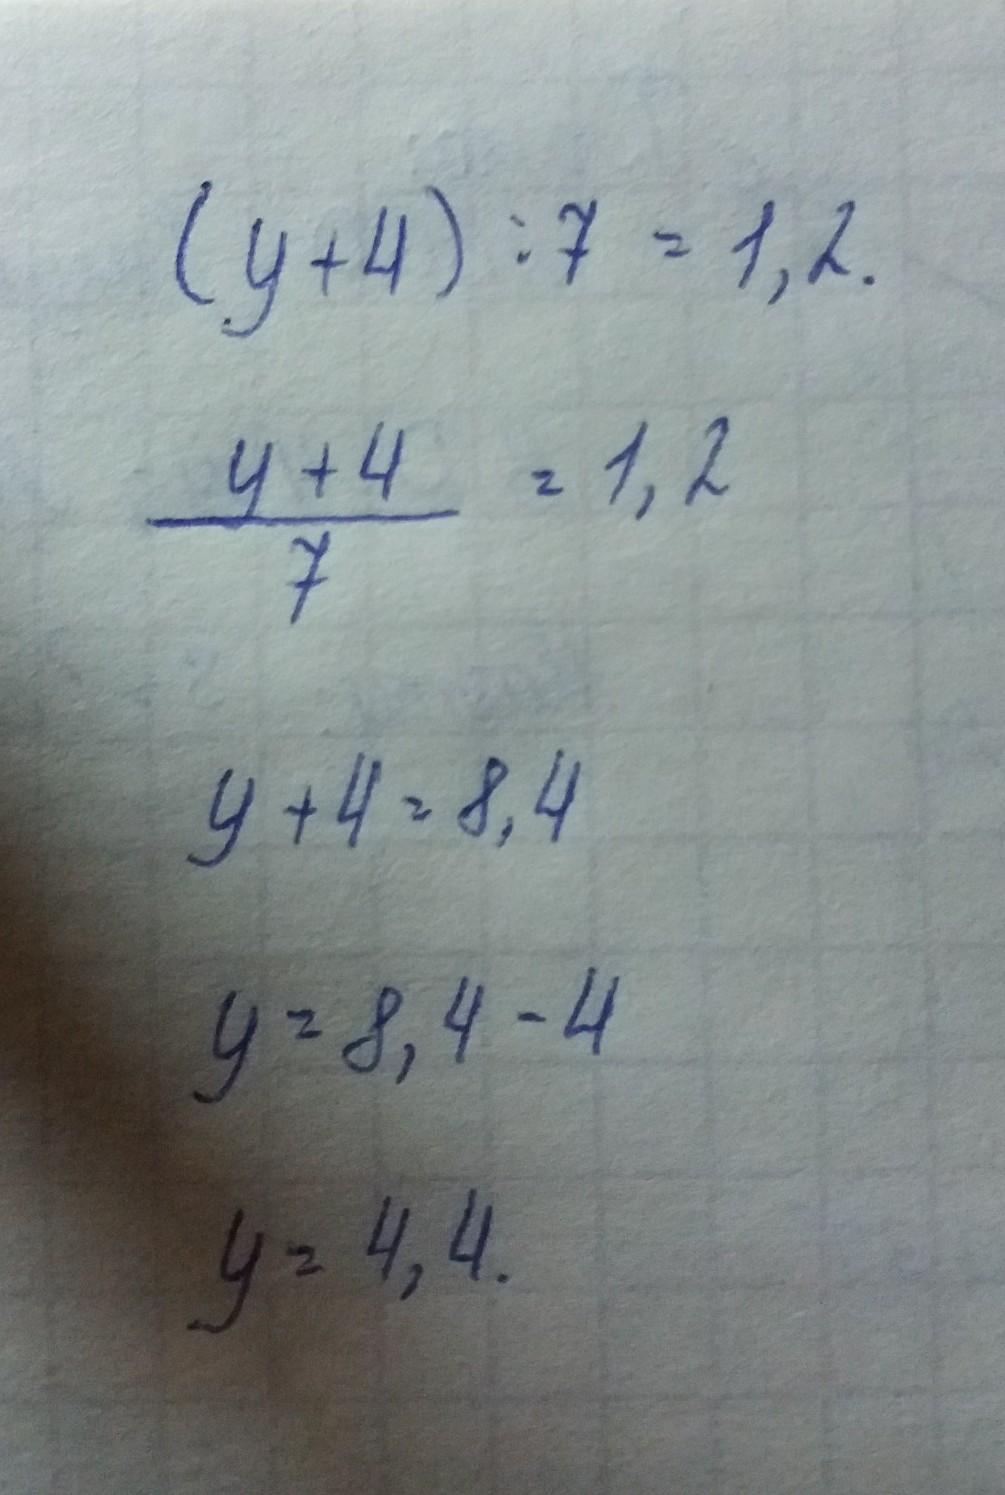 (y+4) : 7 = 1,2.
y+4
7
= 1,2
y+4=8,4
y=8,4-4
y=4,4.